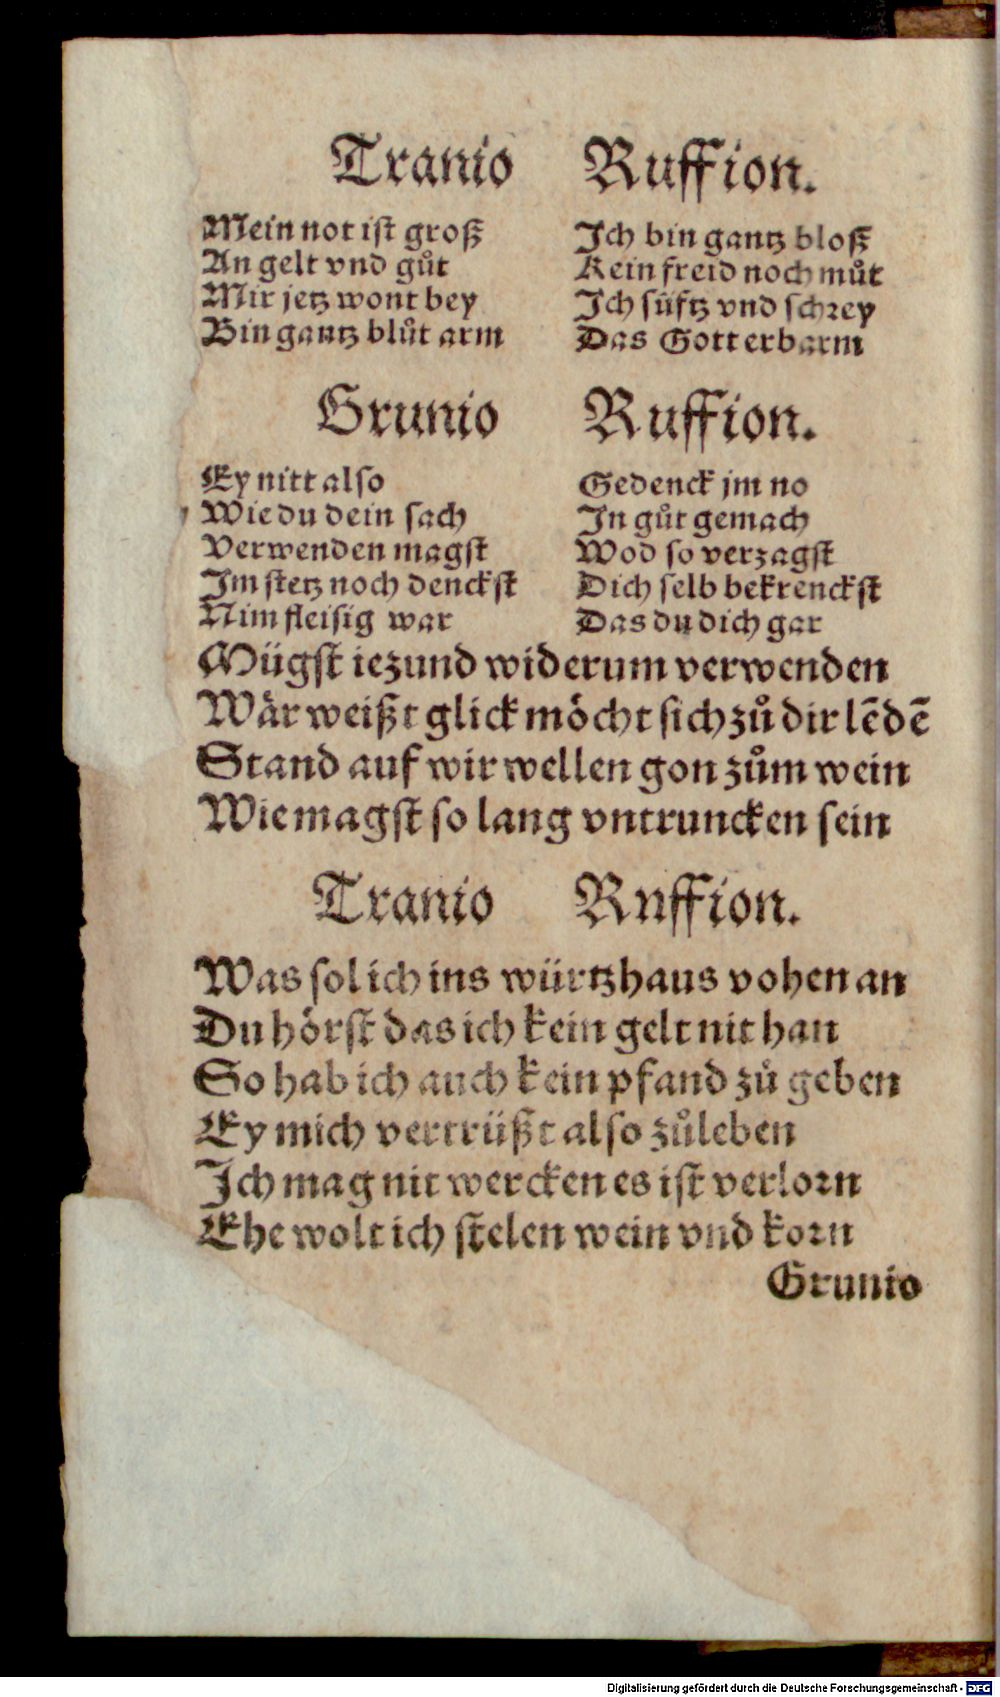 Tranio Ruffion.
Mein not ist groß Ich bin gantz bloß
An gelt vnd gůt Kein freid noch můt
Mir jetz wont bey Ich süftz vnd schrey
Bin gantz blůt arm Das Gott erbarm
Grunio Ruffion.
Ey nitt also Gedenck jm no
Wie du dein sach In gůt gemach
Verwenden magst Wod so verzagst
Im stetz noch denckst Dich selb bekrenckst
Nim fleisig war Das du dich gar
Mügst iezund widerum verwenden
Wär weißt glick möcht sich zů dir lēdē
Stand auf wir wellen gon zům wein
Wie magst so lang vntruncken sein
Tranio Ruffion.
Was sol ich ins würtzhaus vohen an
Du hörst das ich kein gelt nit han
So hab ich auch kein pfand zů geben
Ey mich vertrüßt also zůleben
Ich mag nit wercken es ist verlorn
Ehe wolt ich stelen wein vnd korn
Grunio
Digitalisierung gefördert durch die Deutsche Forschungsgemeinschaft - DFG